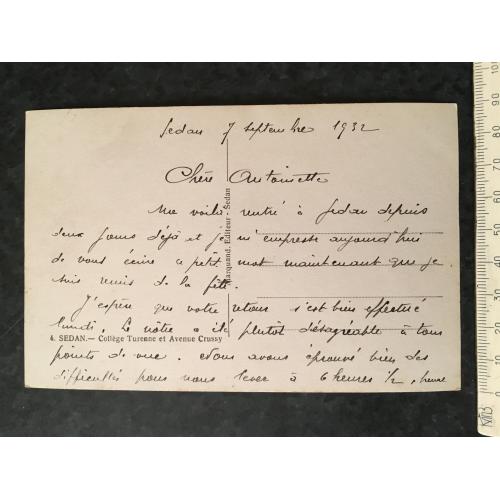 Sedan 7 septembre 1932
Chère Antoinette
Me voilà rentré à Sedan depuis
deux jours déjà et je m'empresse aujourd'hui
de vous écrire ce petit mot maintenant que je
suis remis de la fête.
J'espère que votre retour s'est bien effectué
lundi. Le nôtre a été plutôt désagréable à tous
points de vue. Nous avons éprouvé bien des
difficultés pour nous lever à 6 heures 1/2, heure
4. SEDAN. — Collège Turenne et Avenue Crussy
Marquand, Editeur Sedan
90
80
70
60
50
40
30
20
10